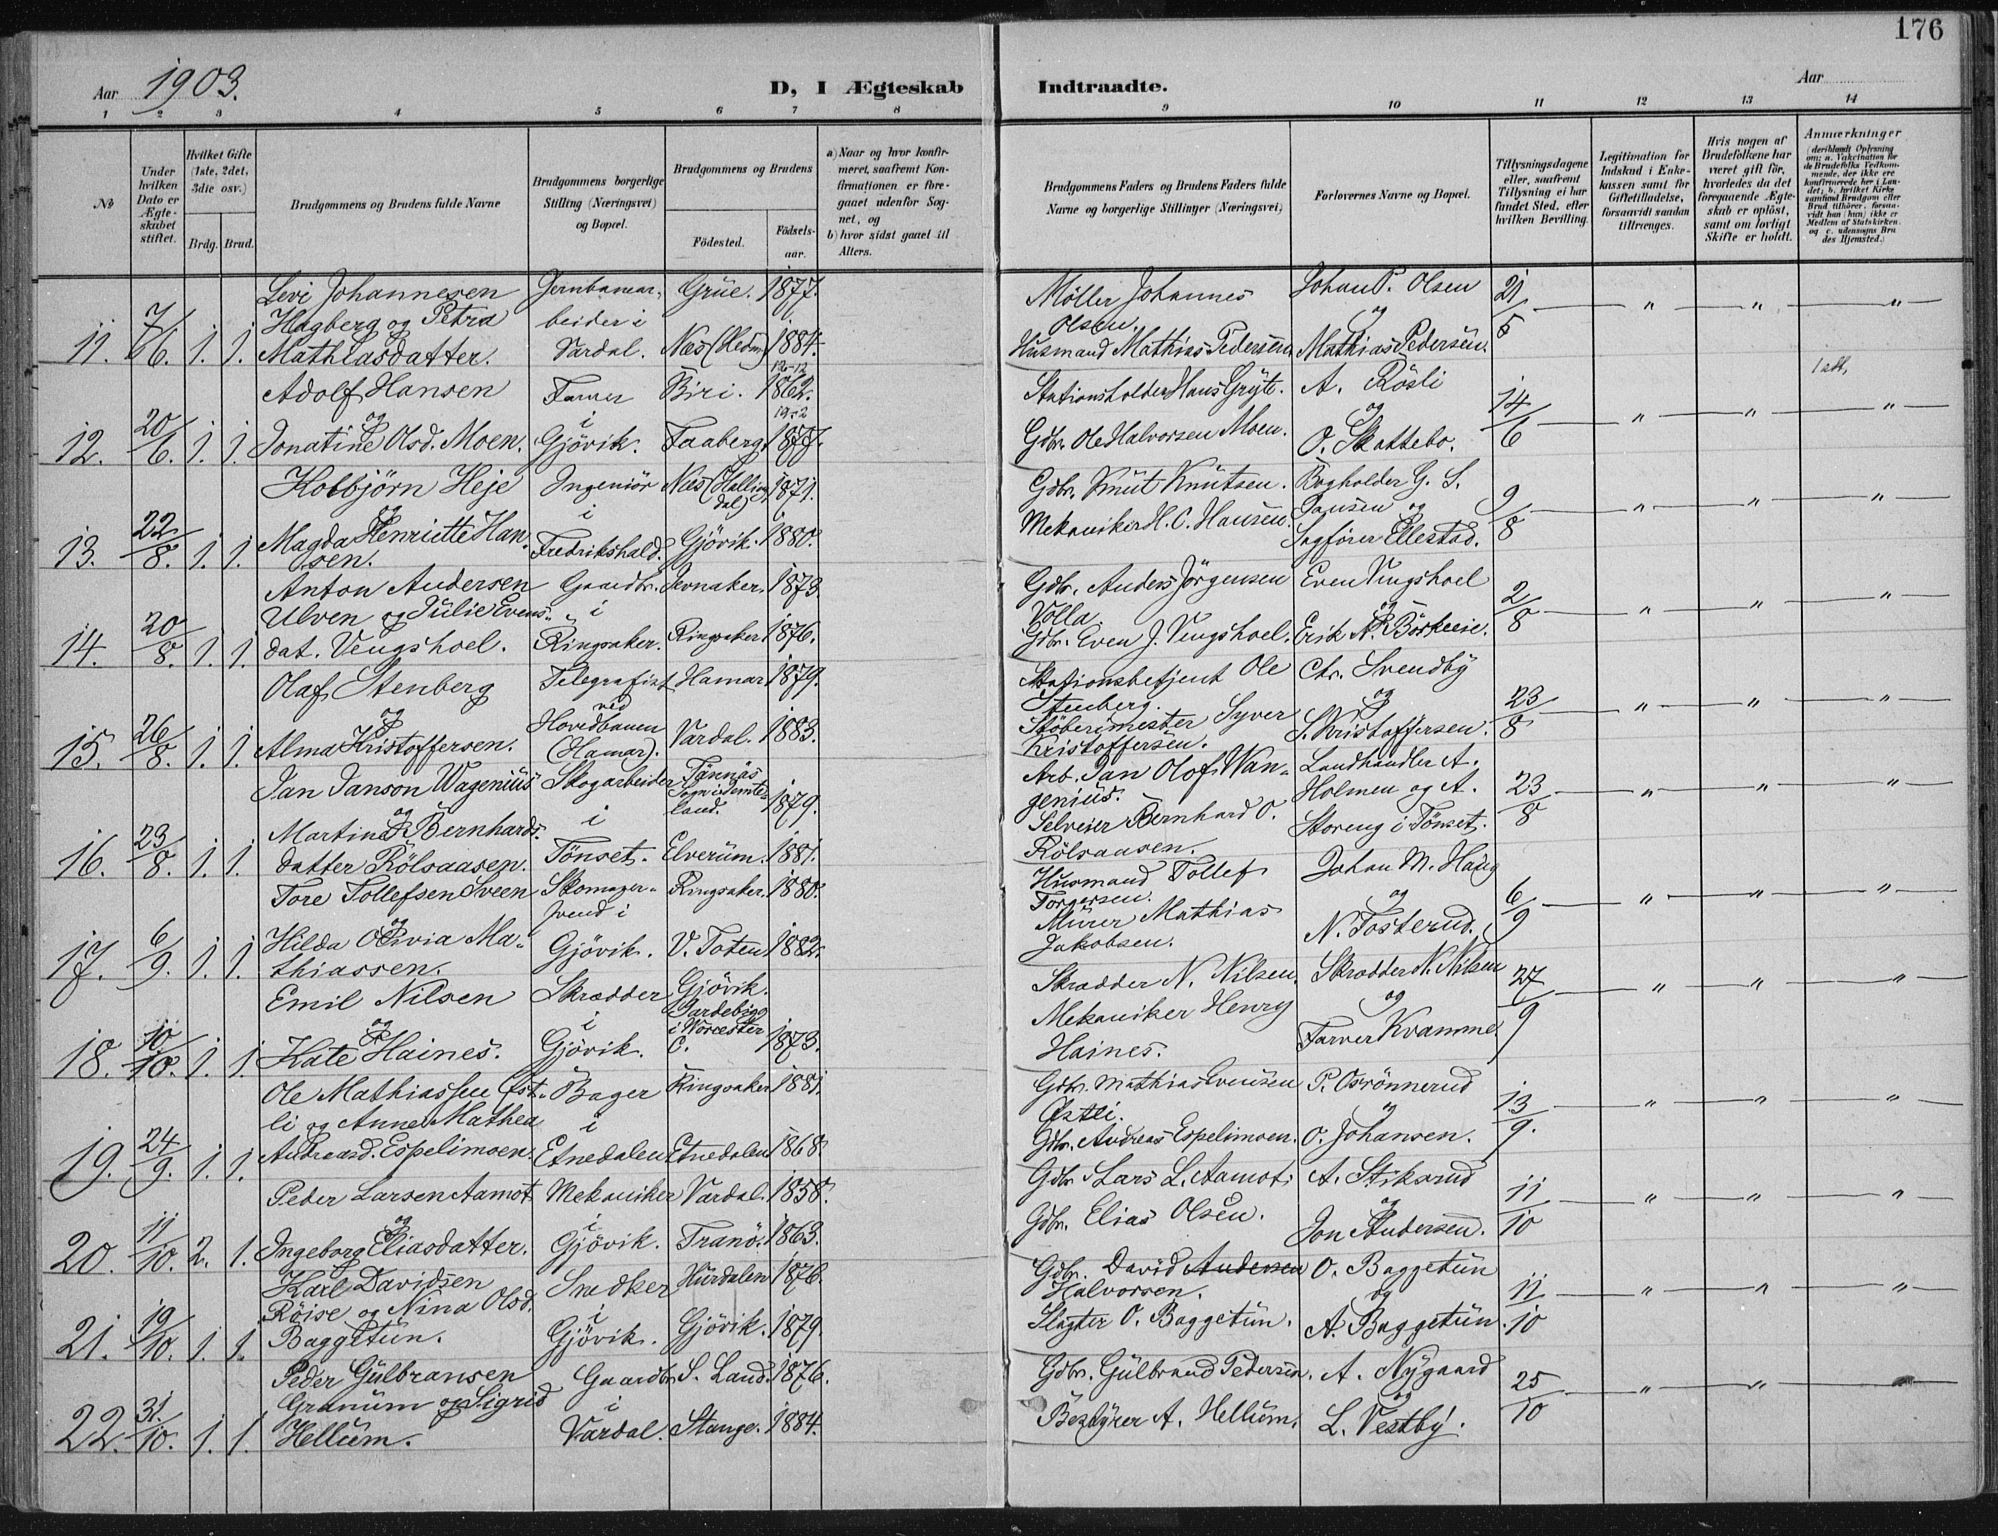 176
Aar 1903.
D, I Ægteskab Indtraadte.
Aar
1 2 3 4 5 6 7 8 9 10 11 12 13 14
№
Under hvilken Dato er Ægteskabet stiftet.
Hvilket Gifte (1ste, 2det, 3die osv.)
Brdg. Brud.
Brudgommens og Brudens fulde Navne
Brudgommens borgerlige Stilling (Næringsvei) og Bopæl.
Brudgommens og Brudens
Fødested.
Fødselsaar.
a) Naar og hvor konfirmeret, saafremt Konfirmationen er foregaaet udenfor Sognet, og
b) hvor sidst gaaet til Alters.
Brudgommens Faders og Brudens Faders fulde Navne og borgerlige Stillinger (Næringsvei)
Forlovernes Navne og Bopæl.
Tillysningsdagene eller, saafremt Tillysning ei har fundet Sted, efter hvilken Bevilling.
Legitimation for Indskud i Enkekassen samt for Giftetilladelse, forsaavidt saadan tiltrænges.
Hvis nogen af Brudefolkene har været gift før, hvorledes da det foregaaende Ægteskab er opløst, samt om lovligt Skifte er holdt.
Anmærkninger (deriblandt Oplysning om: a. Vakcination for de Brudefolks Vedkommende, der ikke ere konfirmerede her i Landet; b. hvilket Kirkesamfund Brudgom eller Brud tilhører, forsaavidt han (hun) ikke er Medlem af Statskirken. og c. udensogns Brudes Hjemsted.)
11. 7/6. 1. 1. Levi Johannesen Hagberg og Petra Mathiasdatter. Jernbanearbeider i Vardal. Grue. 1877. Næs (Hedm) 1884. Møller Johannes Olsen. Husmand Mathias Pedersen. Johan P. Olsen og Mathias Pedersen. 21/5 — " — " — "
12. 20/6. 1. 1. Adolf Hansen og Jonatine Olsd. Moen. Farver i Gjövik. Biri. 12-12 1862. Faaberg. 19-2 1877. Stationsholder Hans Gryte. Gdbr. Ole Halvorsen Moen. A. Rösli og O. Skattebo. 14/6 — " — " — " 1 att,
13. 22/8. 1. 1. Holbjörn Heje og Magda Henriette Hansen. Ingeniör i Fredrikshald. Næs (Hallingdal) 1871. Gjövik. 1880. Gdbr. Knut Knutsen. Mekaniker H. C. Hansen. Bogholder G. S. Jansen og Sagförer Ellestad. 9/8 — " — " — "
14. 20/8. 1. 1. Anton Andersen Ulven og Julie Evensdat. Vengshoel. Gaardbr. i Ringsaker. Jevnaker. 1873. Ringsaker 1876. Gdbr. Anders Jörgensen Volla. Gdbr. Even J. Vengshoel. Even Vingshoel og Erik N. Börkeeie. 2/8 — " — " — "
15. 26/8. 1. 1. Olaf Stenberg og Alma Kristoffersen. Telegrafist ved Hovedbanen (Hamar). Hamar 1879. Vardal. 1883. Stationsbetjent Ole Stenberg. Stöberimester Syver Kristoffersen. Chr. Svendby og S. Kristoffersen. 23/8 — " — " — "
16. 23/8. 1. 1. Jan Janson Wagenius og Martina Bernhardsdatter Rölsaasen. Skogarbeider i Tönset. Tännäs Sogn i Jemteland. 1879. Elverum. 1881. Arb. Jan Olof Wangenius. Selveier Bernhard O. Rölsaasen. Landhandler A. Holmen og A. Storeng i Tönset. 23/8 — " — " — "
17. 6/9. 1. 1. Tore Tollefsen Sveen og Hilda Olivia Mathiassen. Skomagersvend i Gjövik. Ringsaker. 1880. V. Toten 1882. Husmand Tollef Torgersen. Murer Mathias Jakobsen. Johan M. Haug og N. Fosterud. 6/9 — " — " — "
18. 10/10. 1. 1. Emil Nilsen og Kate Haines. Skrædder i Gjövik. Gjövik. Tardebigg i Worcester C. 1873. Skrædder N. Nilsen. Mekaniker Henry Haines. Skrædder N. Nilsen og Farver Kvamme. 27/9 — " — " — "
19. 24/9. 1. 1. Ole Mathiassen Østli og Anne Mathea Andreasd. Espelimoen. Bager i Etnedalen Ringsaker 1881. Etnedalen 1868. Gdbr. Mathias Evensen Østli. Gdbr. Andreas Espelimoen. P. Osrönnerud og O. Johansen. 13/9. — " — " — "
20. 11/10. 2. 1. Peder Larsen Aamot og Ingeborg Eliasdatter. Mekaniker i Gjövik. Vardal. 1858. Tranö. 1863. Gdbr. Lars L. Aamot. Gdbr. Elias Olsen. A. Stiksrud og Jon Andersen. 11/10 — " — " — "
21. 19/10. 1. 1. Karl Davidsen Röise og Nina Olsd. Baggetun. Snedker i Gjövik. Hurdalen 1876. Gjövik. 1879. Gdbr. David Andersen Halvorsen. Slagter O. Baggetun. O. Baggetun og A. Baggetun. 11/10 — " — " — "
22. 31/10. 1. 1. Peder Gulbransen Granum og Sigrid Hellum. Gaardbr. i Vardal. S. Land. 1876. Stange. 1884. Gdbr. Gulbrand Pedersen. Bestyrer A. Hellum. A. Nygaard og L. Vestby. 25/10 — " — " — "